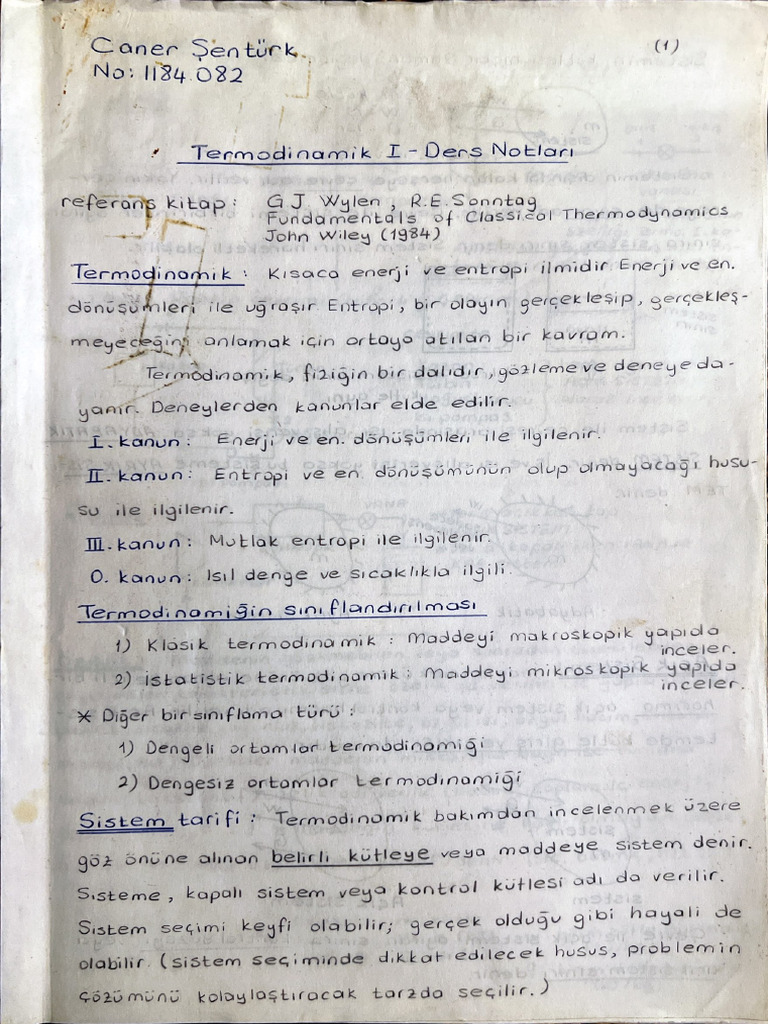 Caner Şentürk
(1)
No: 1184.082
Termodinamik I - Ders Notları
referans kitap : G.J. Wylen , R.E. Sonntag
Fundamentals of Classical Thermodynamics
John Wiley (1984)
Termodinamik : Kısaca enerji ve entropi ilmidir. Enerji ve en.
dönüşümleri ile uğraşır. Entropi, bir olayın gerçekleşip, gerçekleş-
meyeceğini anlamak için ortaya atılan bir kavram.
Termodinamik, fiziğin bir dalıdır, gözleme ve deneye da-
yanır. Deneylerden kanunlar elde edilir.
I. kanun : Enerji ve en. dönüşümleri ile ilgilenir.
II. kanun : Entropi ve en. dönüşümünün olup olmayacağı husu-
su ile ilgilenir.
III. kanun : Mutlak entropi ile ilgilenir.
0. kanun : Isıl denge ve sıcaklıkla ilgili.
Termodinamiğin sınıflandırılması
1) Klasik termodinamik : Maddeyi makroskopik yapıda
inceler.
2) İstatistik termodinamik : Maddeyi mikroskopik yapıda
inceler.
* Diğer bir sınıflama türü :
1) Dengeli ortamlar termodinamiği
2) Dengesiz ortamlar termodinamiği
Sistem tarifi : Termodinamik bakımdan incelenmek üzere
göz önüne alınan belirli kütleye veya maddeye sistem denir.
Sisteme, kapalı sistem veya kontrol kütlesi adı da verilir.
Sistem seçimi keyfi olabilir; gerçek olduğu gibi hayali de
olabilir. (sistem seçiminde dikkat edilecek husus, problemin
çözümünü kolaylaştıracak tarzda seçilir.)